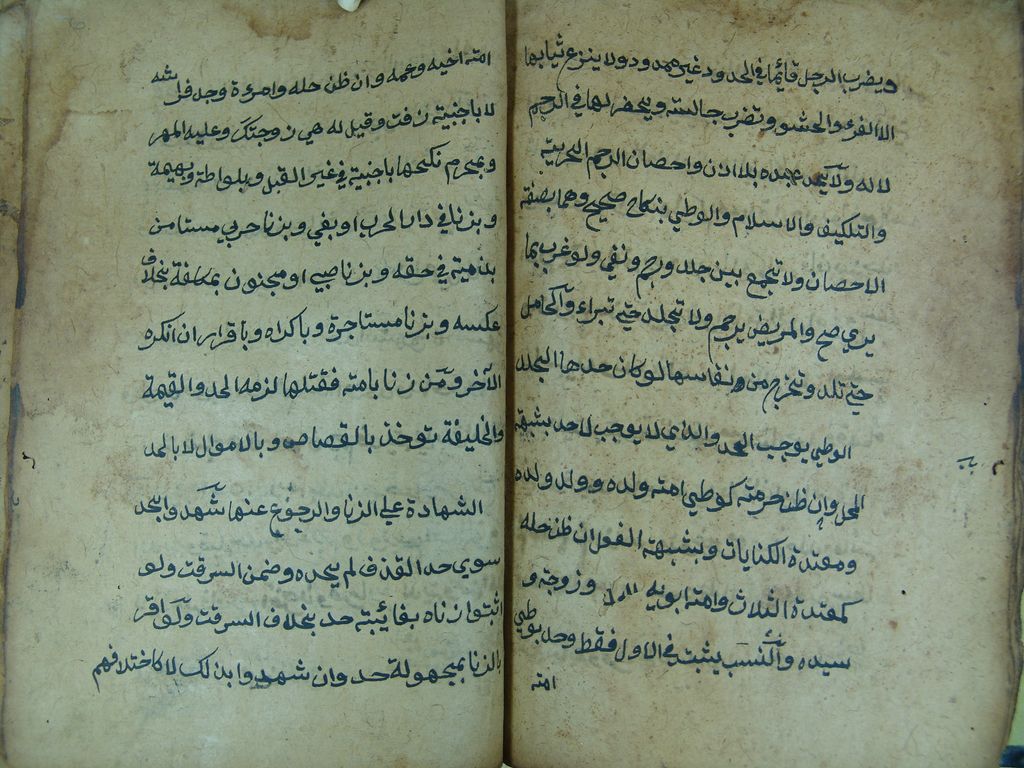 ويضرب الرجل قائما في الحدود غير ممدود ولا ينزع ثيابها
الا الفرو والحشو وتضرب جالسته ويحفر لها في الرجم
لا له ولا يحد عبده بلا اذن واحصان الرجم الحرية
والتكليف والاسلام والوطي بنكاح صحيح وهما بصفة
الاحصان ولا تجمع بين جلد ورجم ونفي ولو غرب بما
يري صح والمريض يرجم ولا تجلد حتي تبراء والحامل
حتي تلد وتخرج من نفاسها لو كان حدها الجلد
الوطي يوجب الحد والذي لا يوجب لا حد بشبهة
المحل وان ظن حرمته كوطي امته ولده وولد ولده
ومعتدة الكنايات وبشبهته الفعل ان ظن حله
كمعتدة الثلاث وامته ابويه وزوجة و
سيده والنسب يثبت في الاول فقط وحد بوطي
امته
امته اخيه وعمه وان ظن حله وامرءة وجد فراشه
لا باجنبية زفت وقيل له هي زوجتك وعليه المهر
وبمحرم نكحها باجنبية في غير القبل وبلواطة وبهيمة
وبزنا في دار الحرب او بغي وبزنا حربي مستامن
بذمية في حقه وبزنا صبي او مجنون بمكلفة بخلاف
عكسه وبزنا مستاجرة وباكراه وباقرار ان انكره
الآخر ومن زنا بامته فقتلها لزمه الحد والقيمة
والخليفة توخذ بالقصاص وبالاموال لا بالحد
الشهادة علي الزنا والرجوع عنها شهدوا بحد
سوي حد القذف لم يحده وضمن السرقت ولو
اثبتوا زناه بغائبته حد بخلاف السرقت ولو اقر
بالزنا بمجهولة حد وان شهدوا بذلك لا كاختلافهم